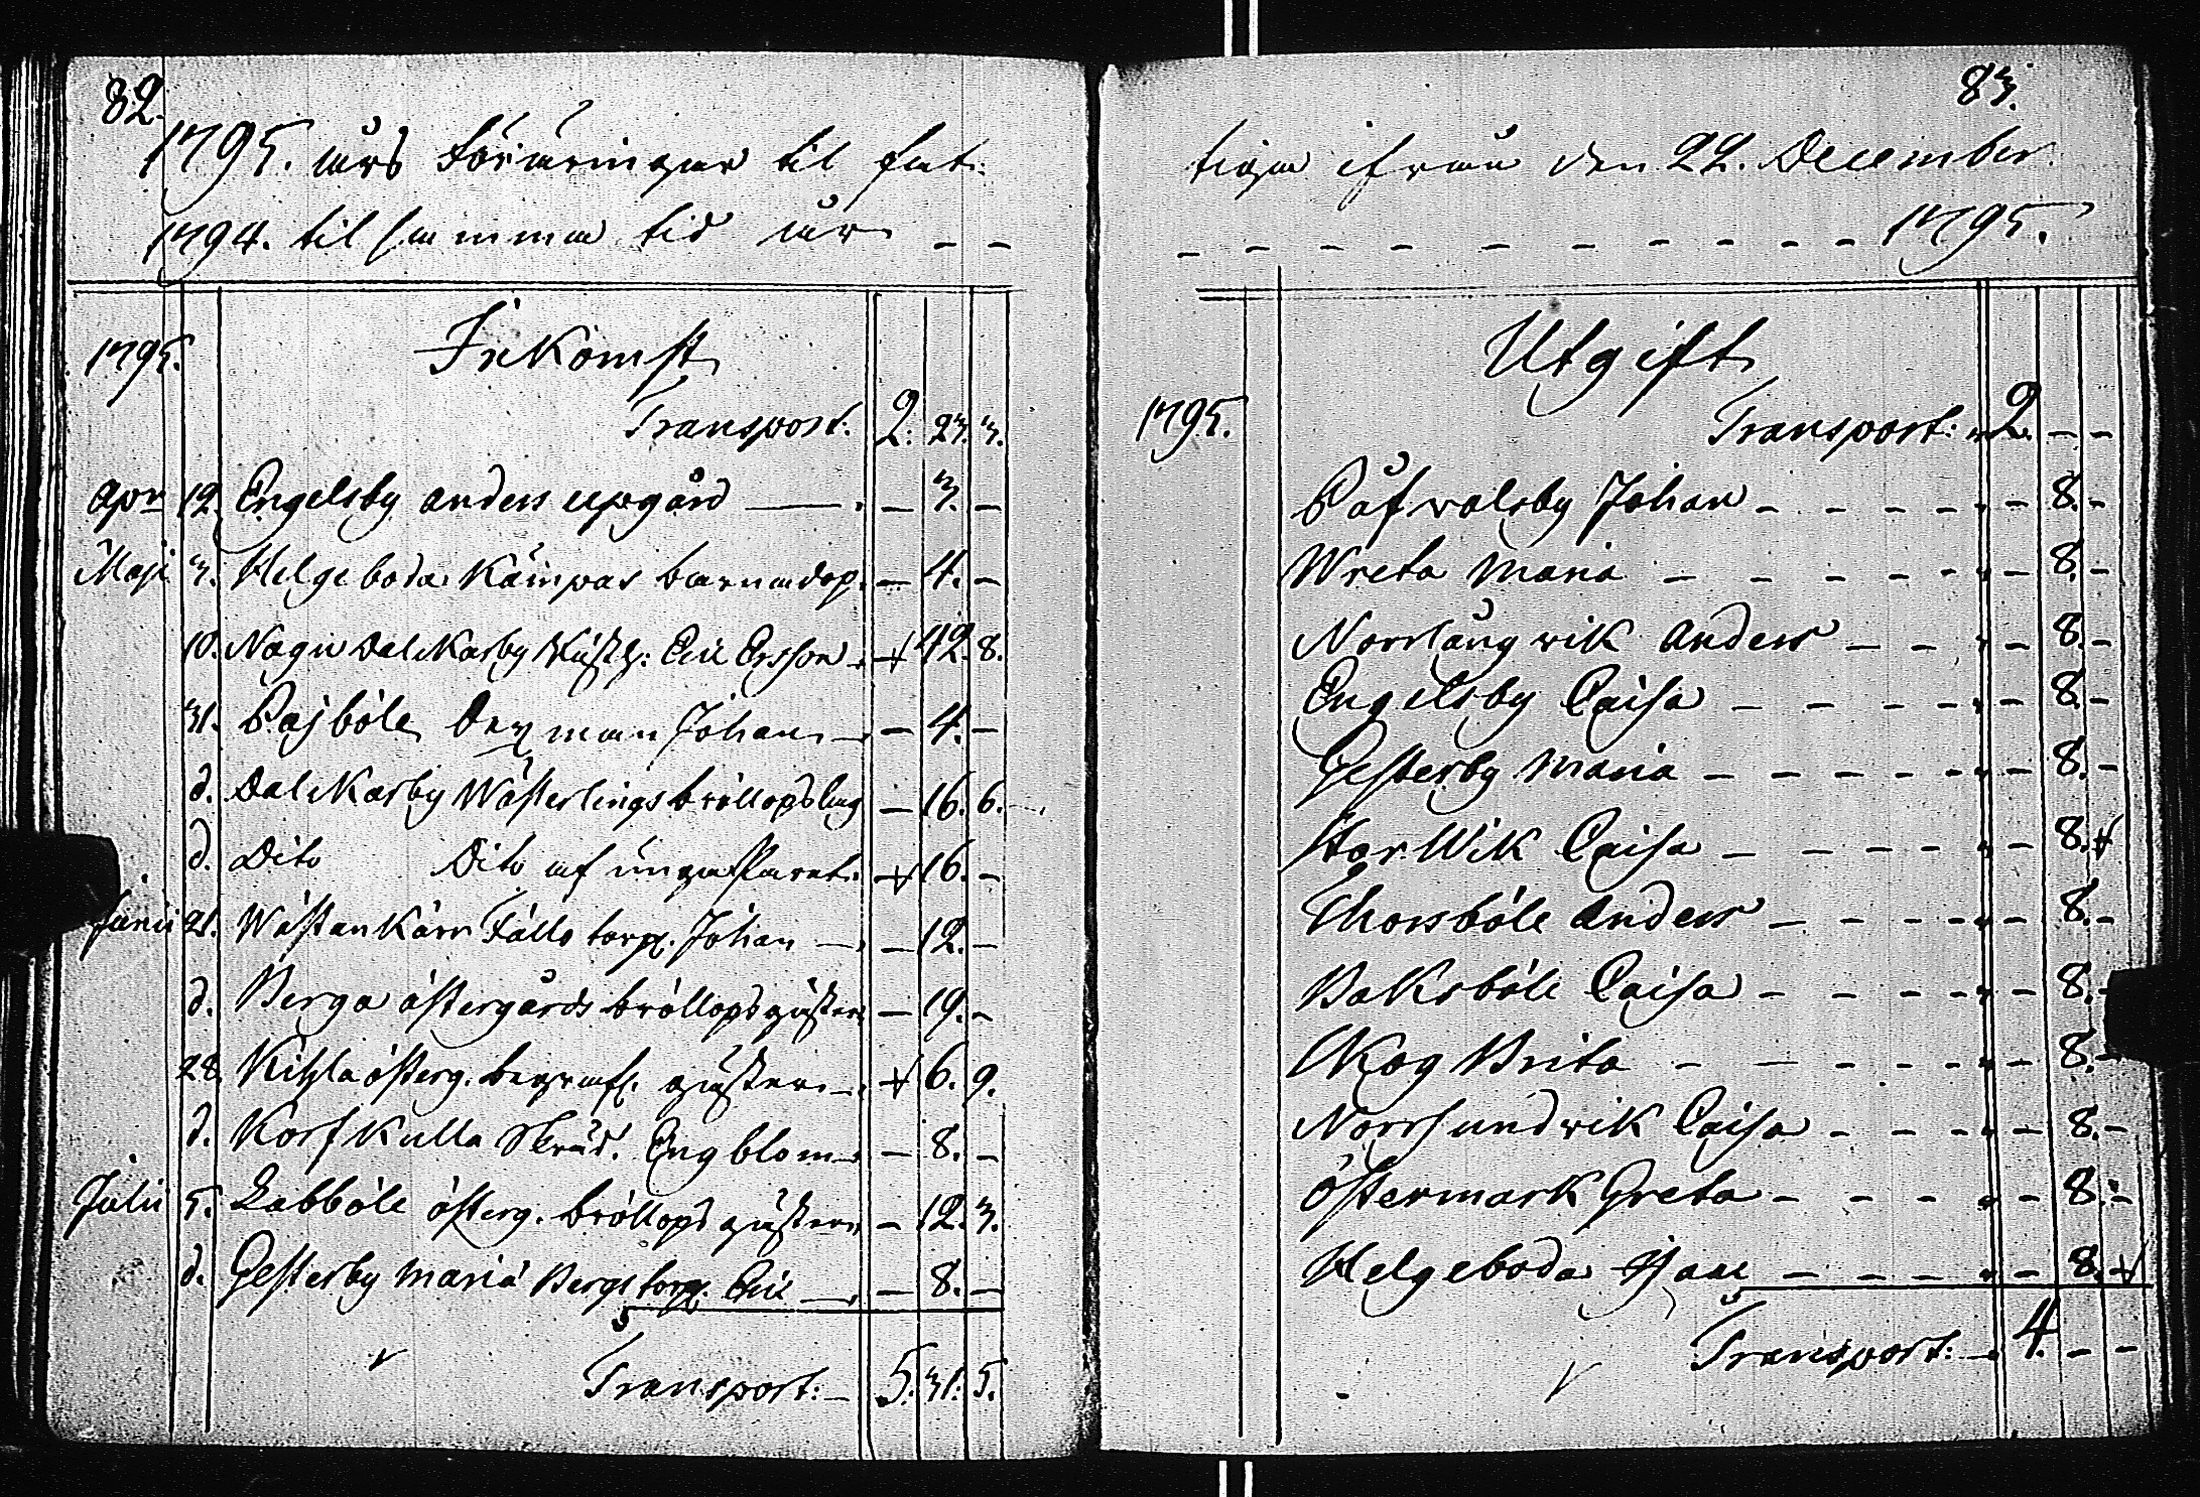 82.
1795. års Föräringar til fat:
1794. til samma tid år – –
1795. Inkomst
Transport: 2. 23. 3.
Apr 12. Engelsby Anders upgård — – 3. –
Maji 3. Helgeboda Kämpas barnadop. – 4. –
10. Nægu Dalkarby Eric Ersson – 42. 8.
31. Pajböle Johan – – 4. –
d. Dalkarby Wästerlings bröllopslag – 16. 6.
d. Dito Dito af unga Paret. – 16. –
Junii 21. Wästankärr Fälls torp. Johan – – 12. –
d. Berga östergårds bröllops gäster – 19. –
28. Kitzla österg. begrafs. gäster – – 6. 9.
d. Korfkulla Skräd. Engblom – – 8. –
Julii 5. Labböle österg. bröllops gäster – 12. 3.
d. Gesterby Maria Bergs torp. Eric – – 8. –
Transport: – 5. 31. 5.
83.
tiga ifrån den 22. December
– – – – – – – – – – 1795.
1795. Utgift
Transport: 2. – –
Påfvalsby Johan – – – – – 8. –
Wreta Maria – – – – – 8. –
Norrlångvik Anders – – – 8. –
Engelsby Caisa – – – – – 8. –
Gesterby Maria – – – – – 8. –
Storwik Caisa – – – – – 8. –
Thorsböle Anders – – – – – 8. –
Baksböle Caisa – – – – – 8. –
Skog Brita – – – – – 8. –
Norrsundvik Caisa – – – – – 8. –
Östermark Greta – – – – – 8. –
Helgeboda – – – – – 8. –
Transport: – 4. – –